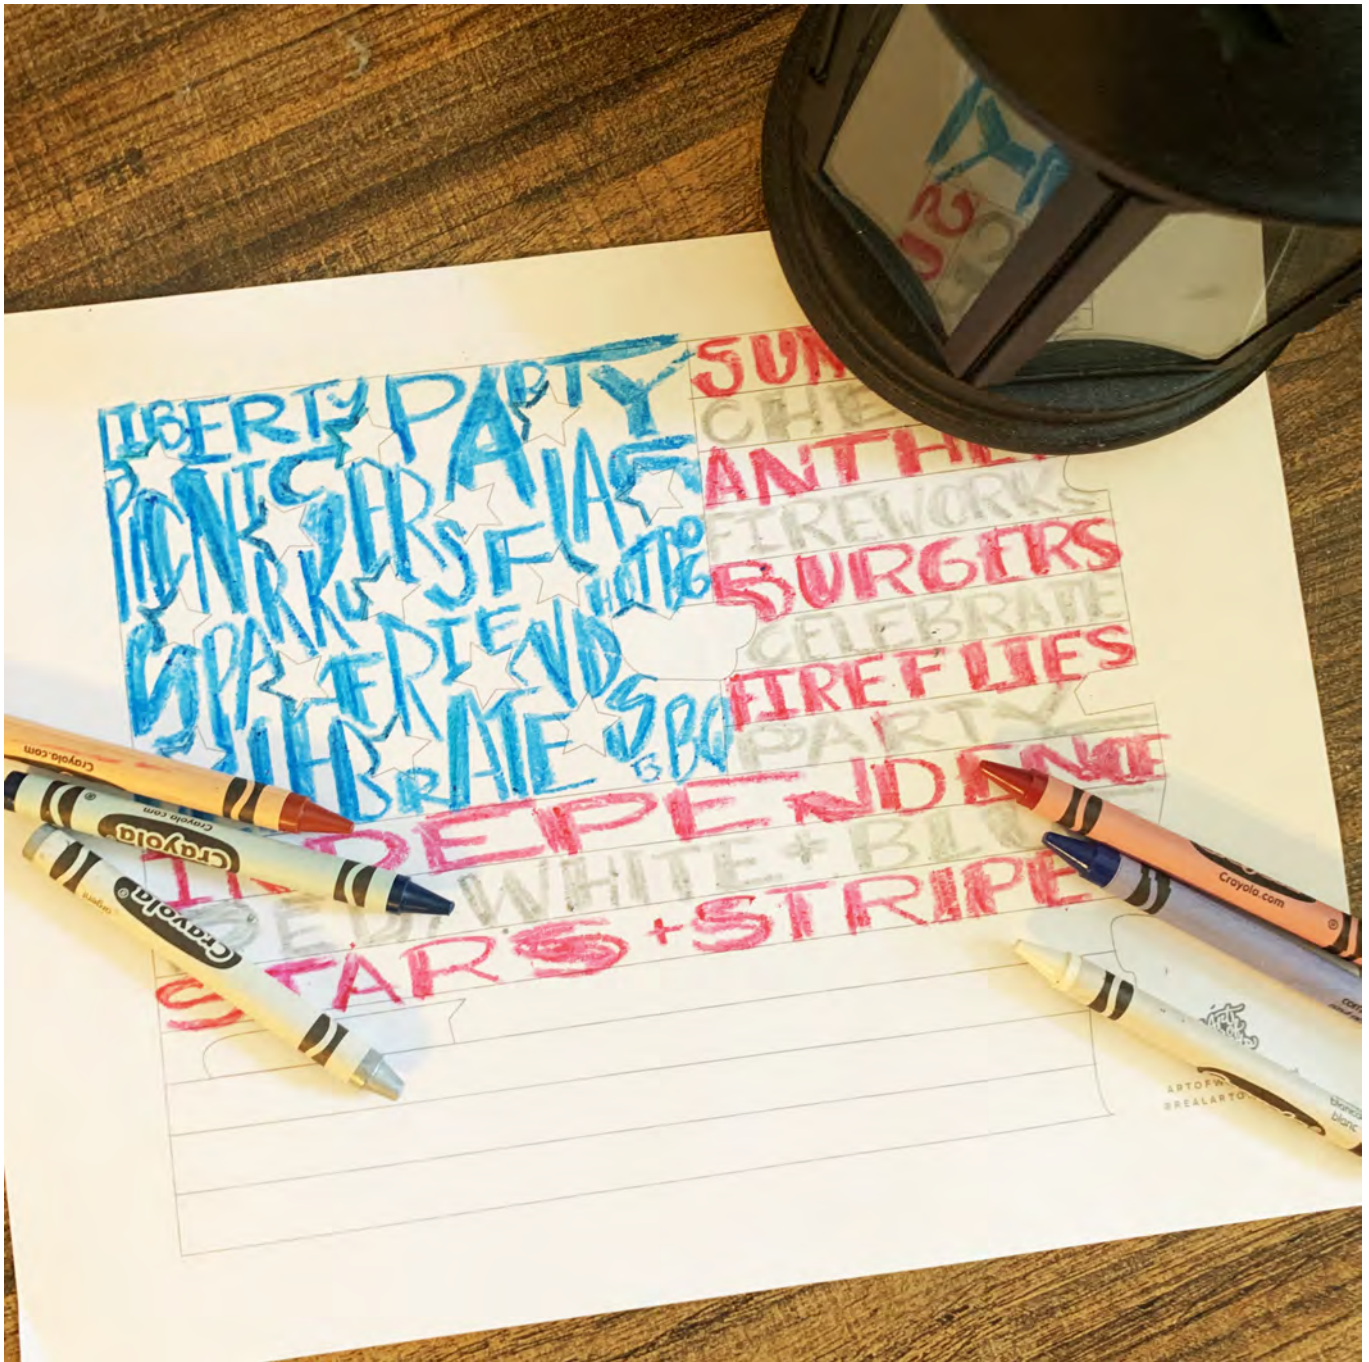 LIBERTY PARTY
PICNIC SERS FLAG
PARKU HOT DOG
SPARK FRIENDS
CELEBRATE BBQ
SUM
CHE
ANTHE
FIREWORKS
BURGERS
CELEBRATE
FIREFLIES
PARTY
INDEPENDENCE
RED, WHITE + BLU
STARS + STRIPE
Crayola.com
Crayola
Crayola.com
Crayola
argent
Crayola.com
ARTOFW
@REALARTO
blanco
blanc